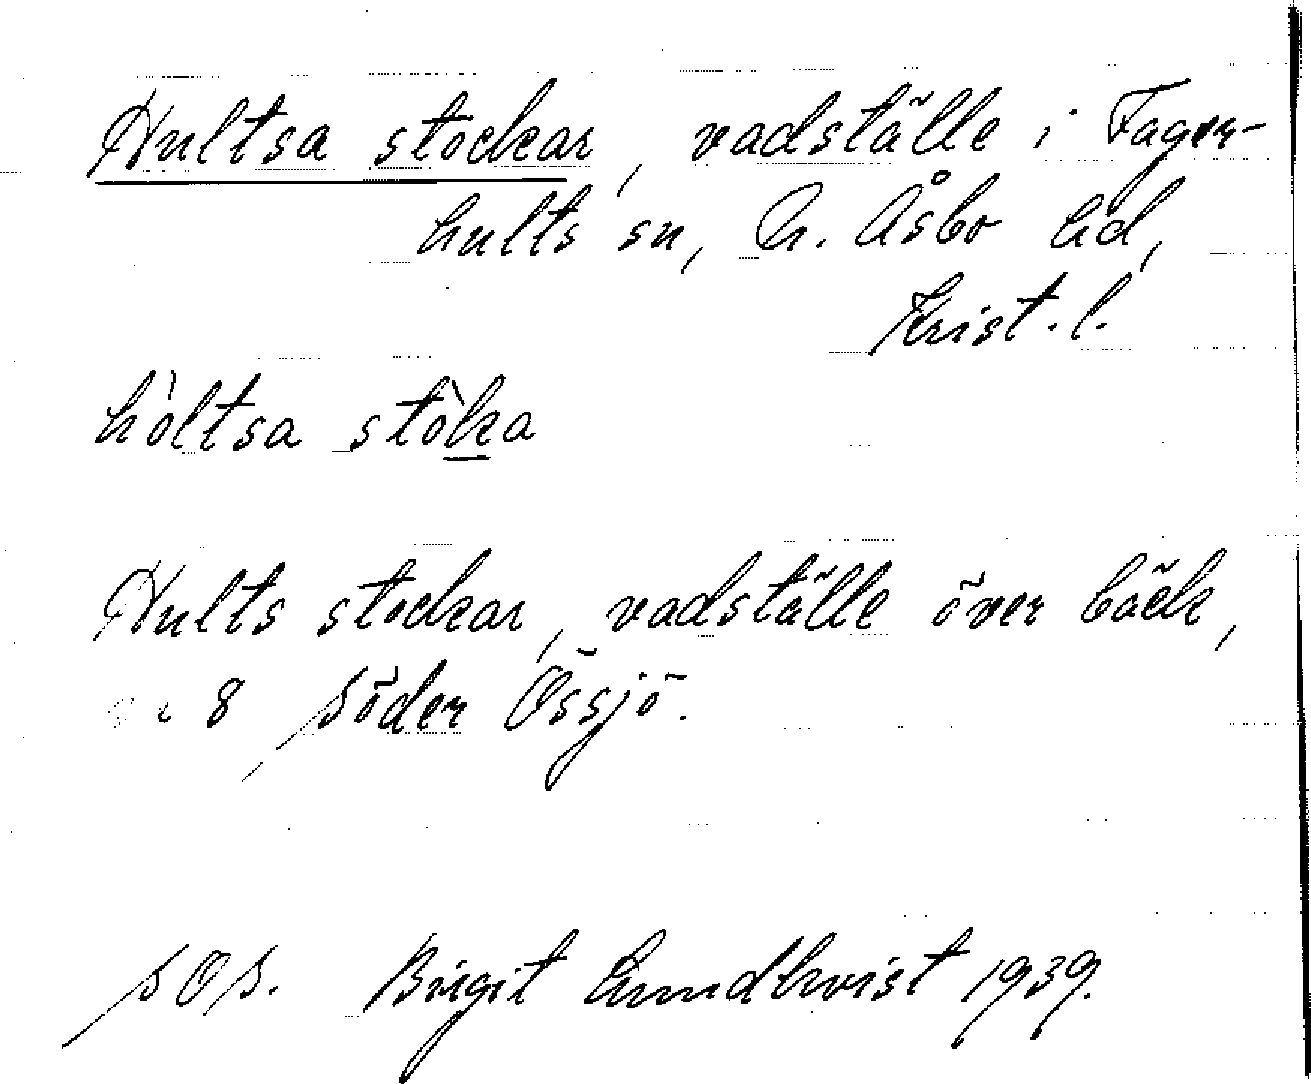 Hultsa stockar, vadställe i Fager-
hults sn, N. Åsbo hd,
Krist. l.
hòltsa stòka
Hults stockar, vadställe över bäck,
8 Söder Össjö.
SOS. Birgit Lundkvist 1939.